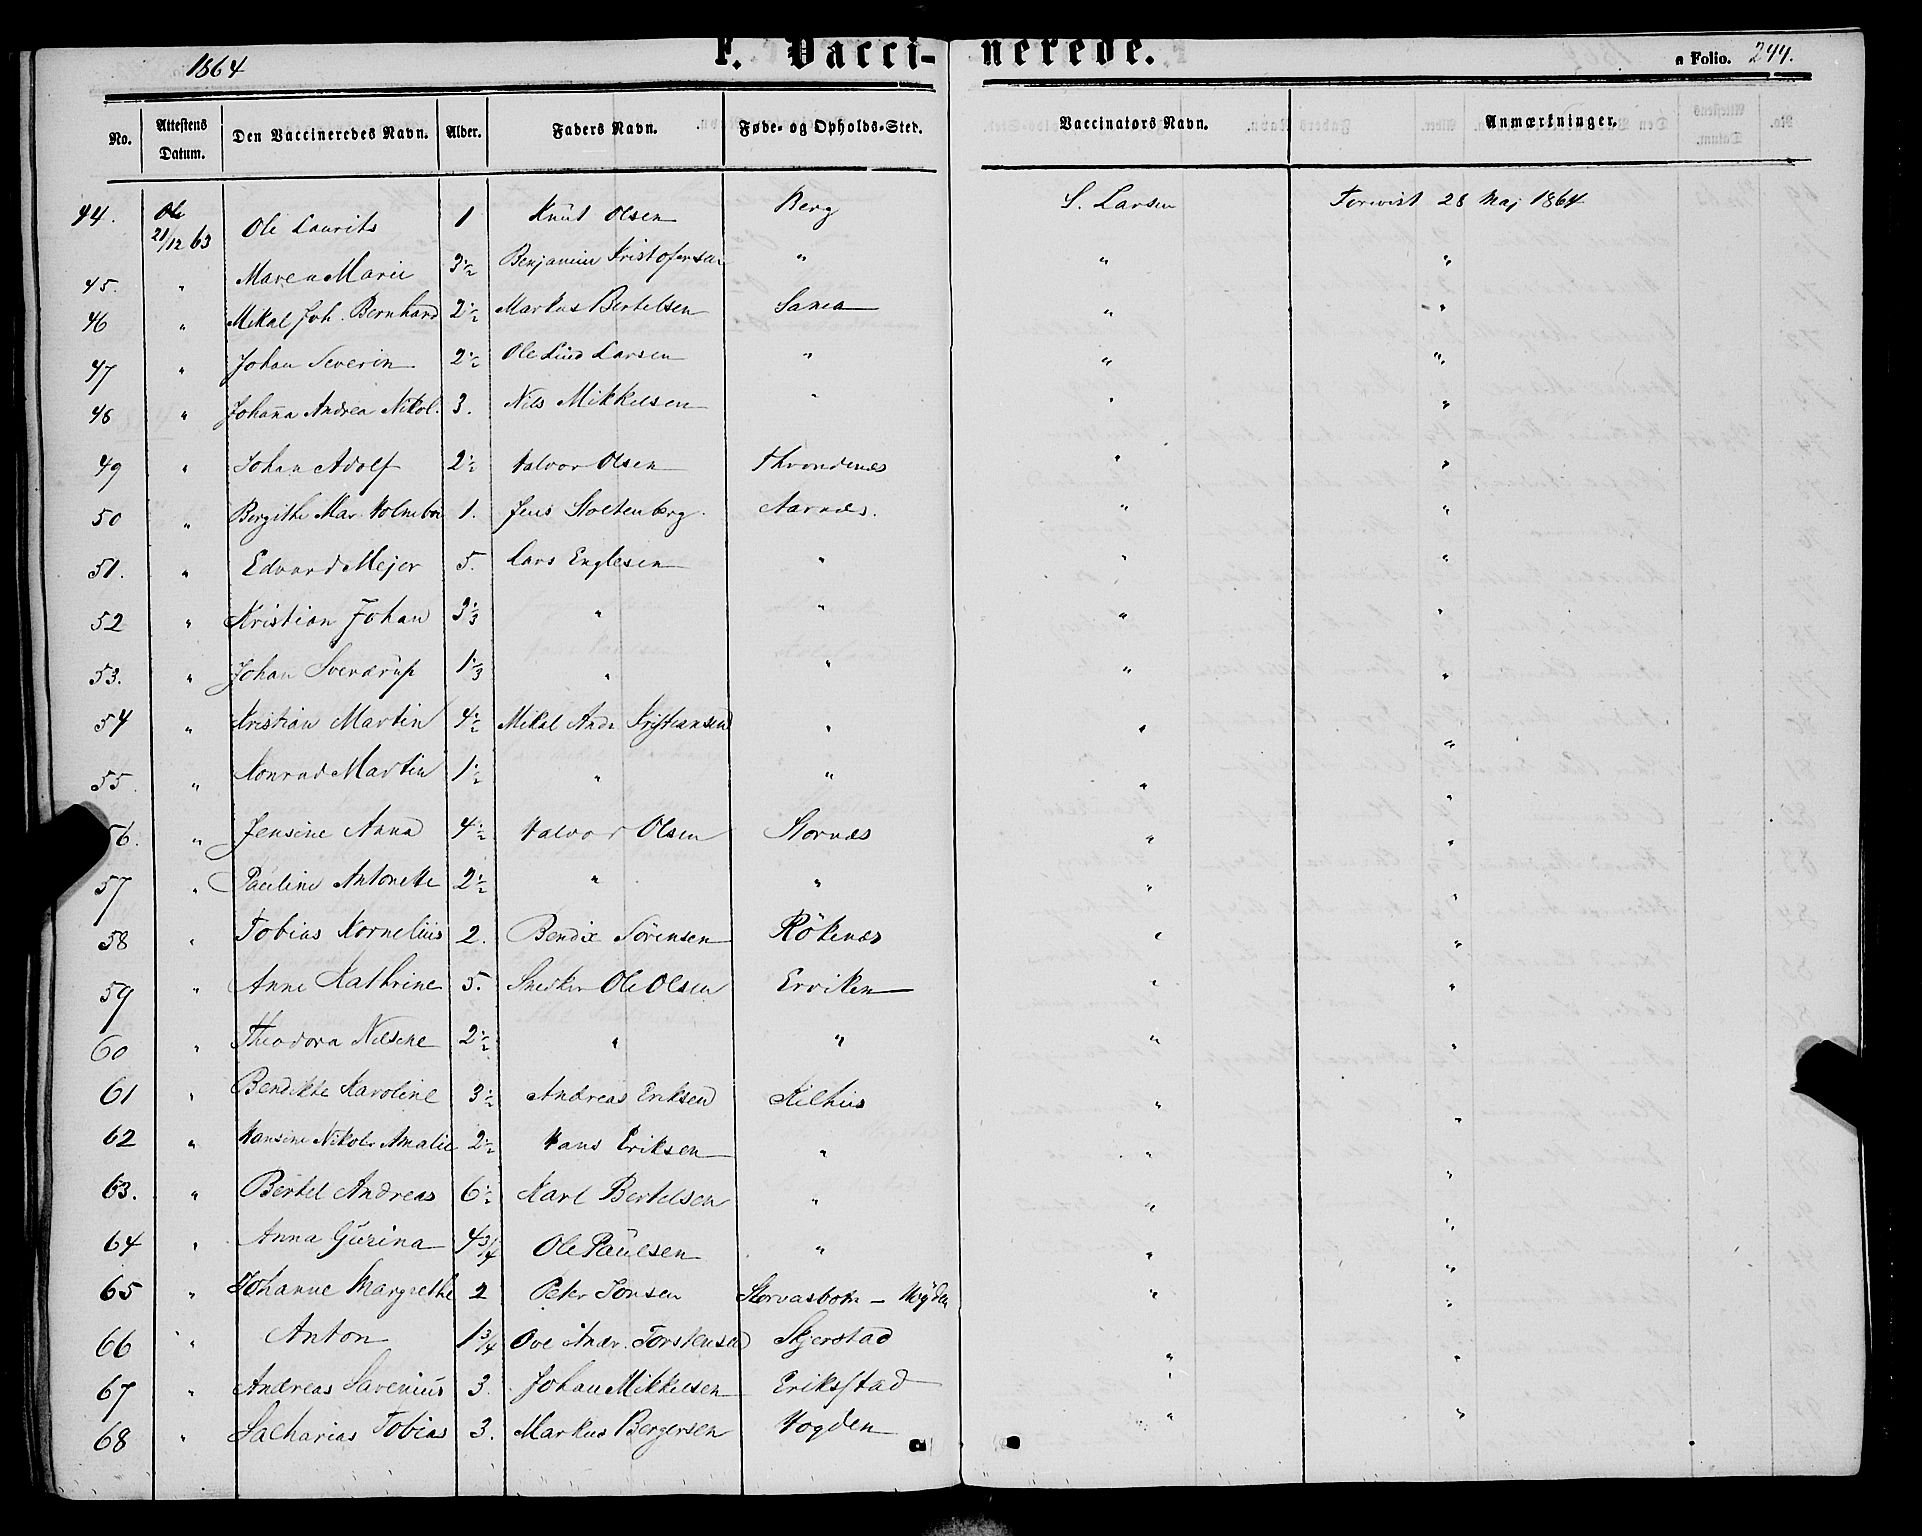 1864 F. Vaccinerede. a Folio. 244.
No. Attestens Datum. Den Vaccineredes Navn. Alder. Faders Navn. Føde- og Opholds-Sted. Vaccinators Navn. Anmærkninger.
44. 21/12 63 Ole Laurits 1 Knut Olsen Berg S. Larsen Forevist 28 Maj 1864
45. " Maren Marie 3 1/2 Benjamin Kristofersen " " "
46 " Mikal Joh. Bernhard 2 1/2 Markus Bertelsen Sama " "
47 " Johan Severin 2 1/2 Ole Lind Larsen " " "
48 " Johanna Andrea Nikol. 3. Nils Mikkelsen " " "
49 " Johan Adolf 2 1/2 Halvor Olsen Throndenæs " "
50 " Bergithe Mar. Holmboe 1. Jens Stoltenberg. Aarnæs. " "
51. " Edvard Mejer 5. Lars Englesen " " "
52 " Kristian Johan 3 1/3 " " " "
53. " Johan Sverdrup 1 1/3 " " " "
54 " Kristian Martin 4 1/2 Mikal Andr Kristiansen " " "
55 " Konrad Martin 1 1/2 " " " "
56. " Jensine Anna 4 1/2 Halvor Olsen Stornæs " "
57 " Pauline Antonette 2 1/2 " " " "
58 " Tobias Kornelius 2. Bendix Sörensen Rökenæs " "
59 " Anne Kathrine 5. Snedker Ole Olsen Erviken " "
60 " Theodora Nilsine 2 1/2 " " " "
61 " Bendikte Karoline 3 1/2 Andreas Eriksen Kilhus " "
62 " Hansine Nikol. Amalie 2 1/2 Hans Eriksen " " "
63. " Bertel Andreas 6 1/2 Karl Bertelsen " " "
64 " Anna Gurina 4 3/4 Ole Paulsen " " "
65 " Johanne Margrethe 2 Peter Jonsen Storvasbotn - " "
66 " Anton 1 3/4 Ove Andr. Torstensen Skjerstad " "
67 " Andreas Savenius 3. Johan Mikkelsen Erikstad " "
68 " Sacharias Tobias 3. Markus Bergersen Hogden " "